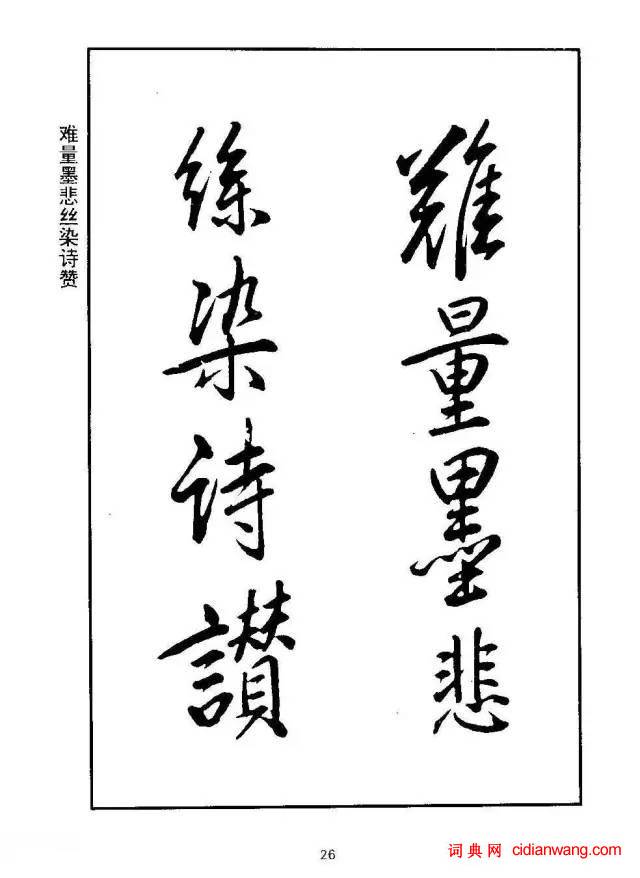 難量墨悲
絲染诗讃
难量墨悲丝染诗赞
26
词典网 cidianwang.com